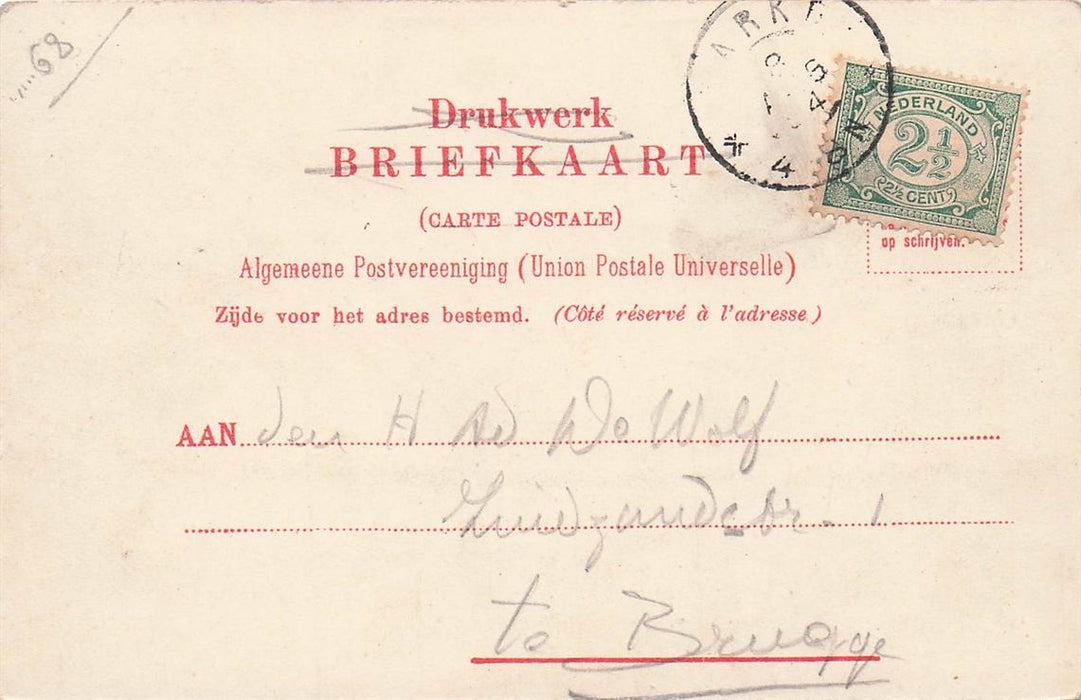 68
Drukwerk
BRIEFKAART
(CARTE POSTALE)
Algemeene Postvereeniging (Union Postale Universelle)
Zijde voor het adres bestemd. (Côté réservé à l'adresse)
NEDERLAND
2½
2½ CENT
op schrijven.
AAN den H Ad De Wolf
Zuidzandstr. 1
te Brugge